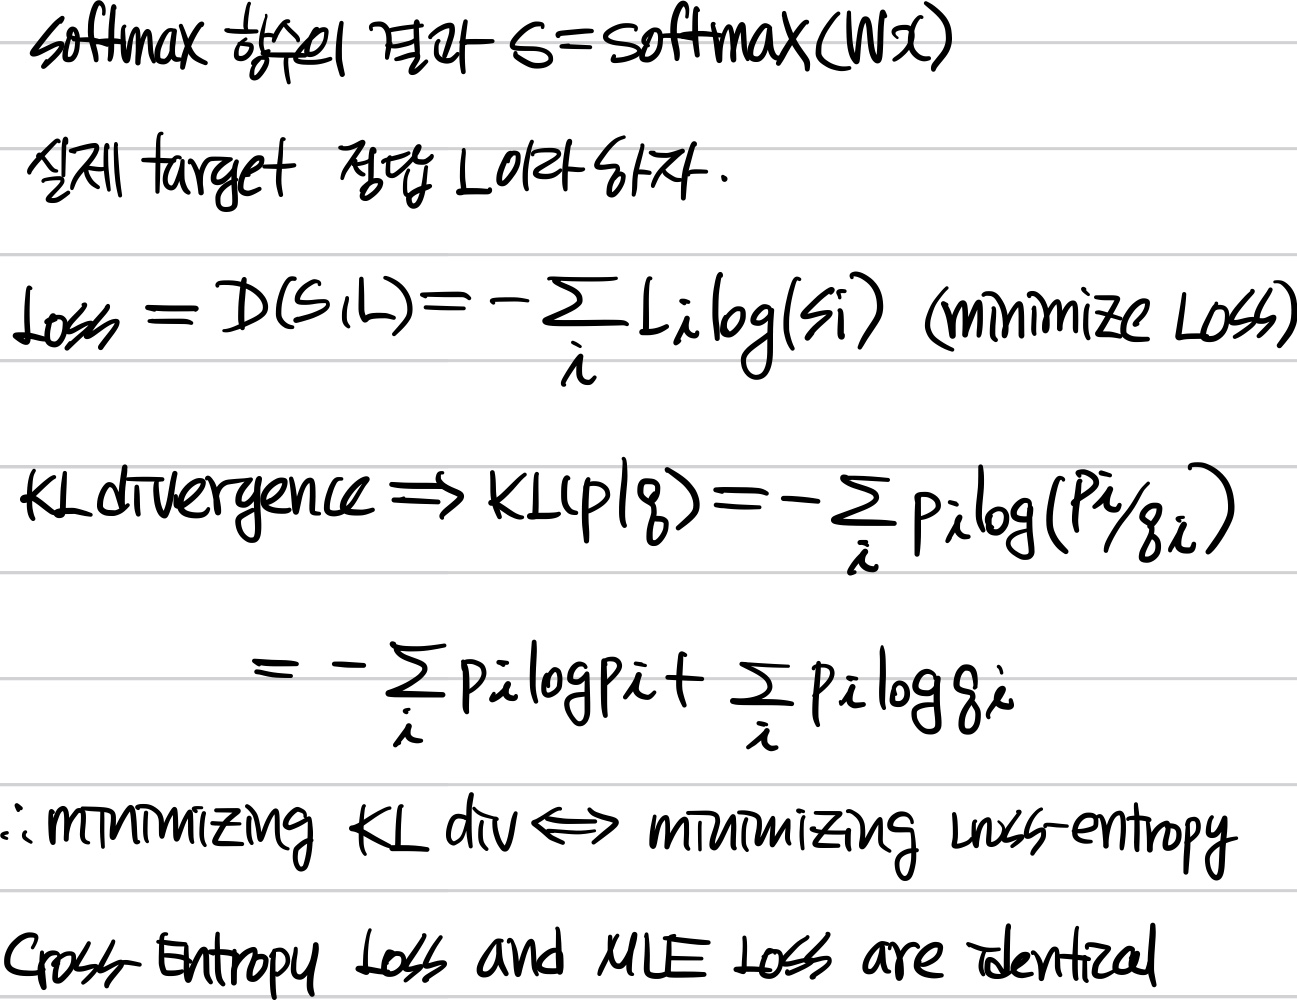 softmax 함수의 결과 S=softmax(Wx)
실제 target 정답 L이라 하자.
Loss = D(S,L) = - Σ_i L_i log(S_i) (minimize Loss)
KL divergence ⇒ KL(p|q) = - Σ_i p_i log(p_i/q_i)
= - Σ_i p_i log p_i + Σ_i p_i log q_i
∴ minimizing KL div ⇔ minimizing cross-entropy
Cross-Entropy Loss and MLE Loss are identical